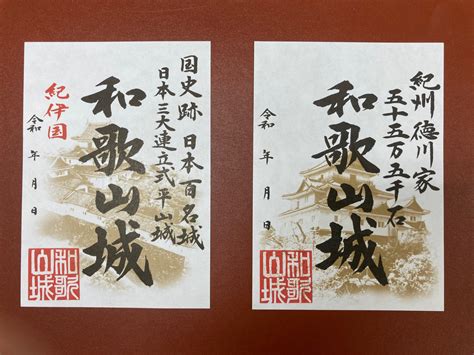 国史跡 日本百名城
日本三大連立式平山城
和歌山城
紀伊国
令和 年 月 日
和歌
山城
紀州 徳川家
五十五万五千石
和歌山城
令和 年 月 日
和歌
山城